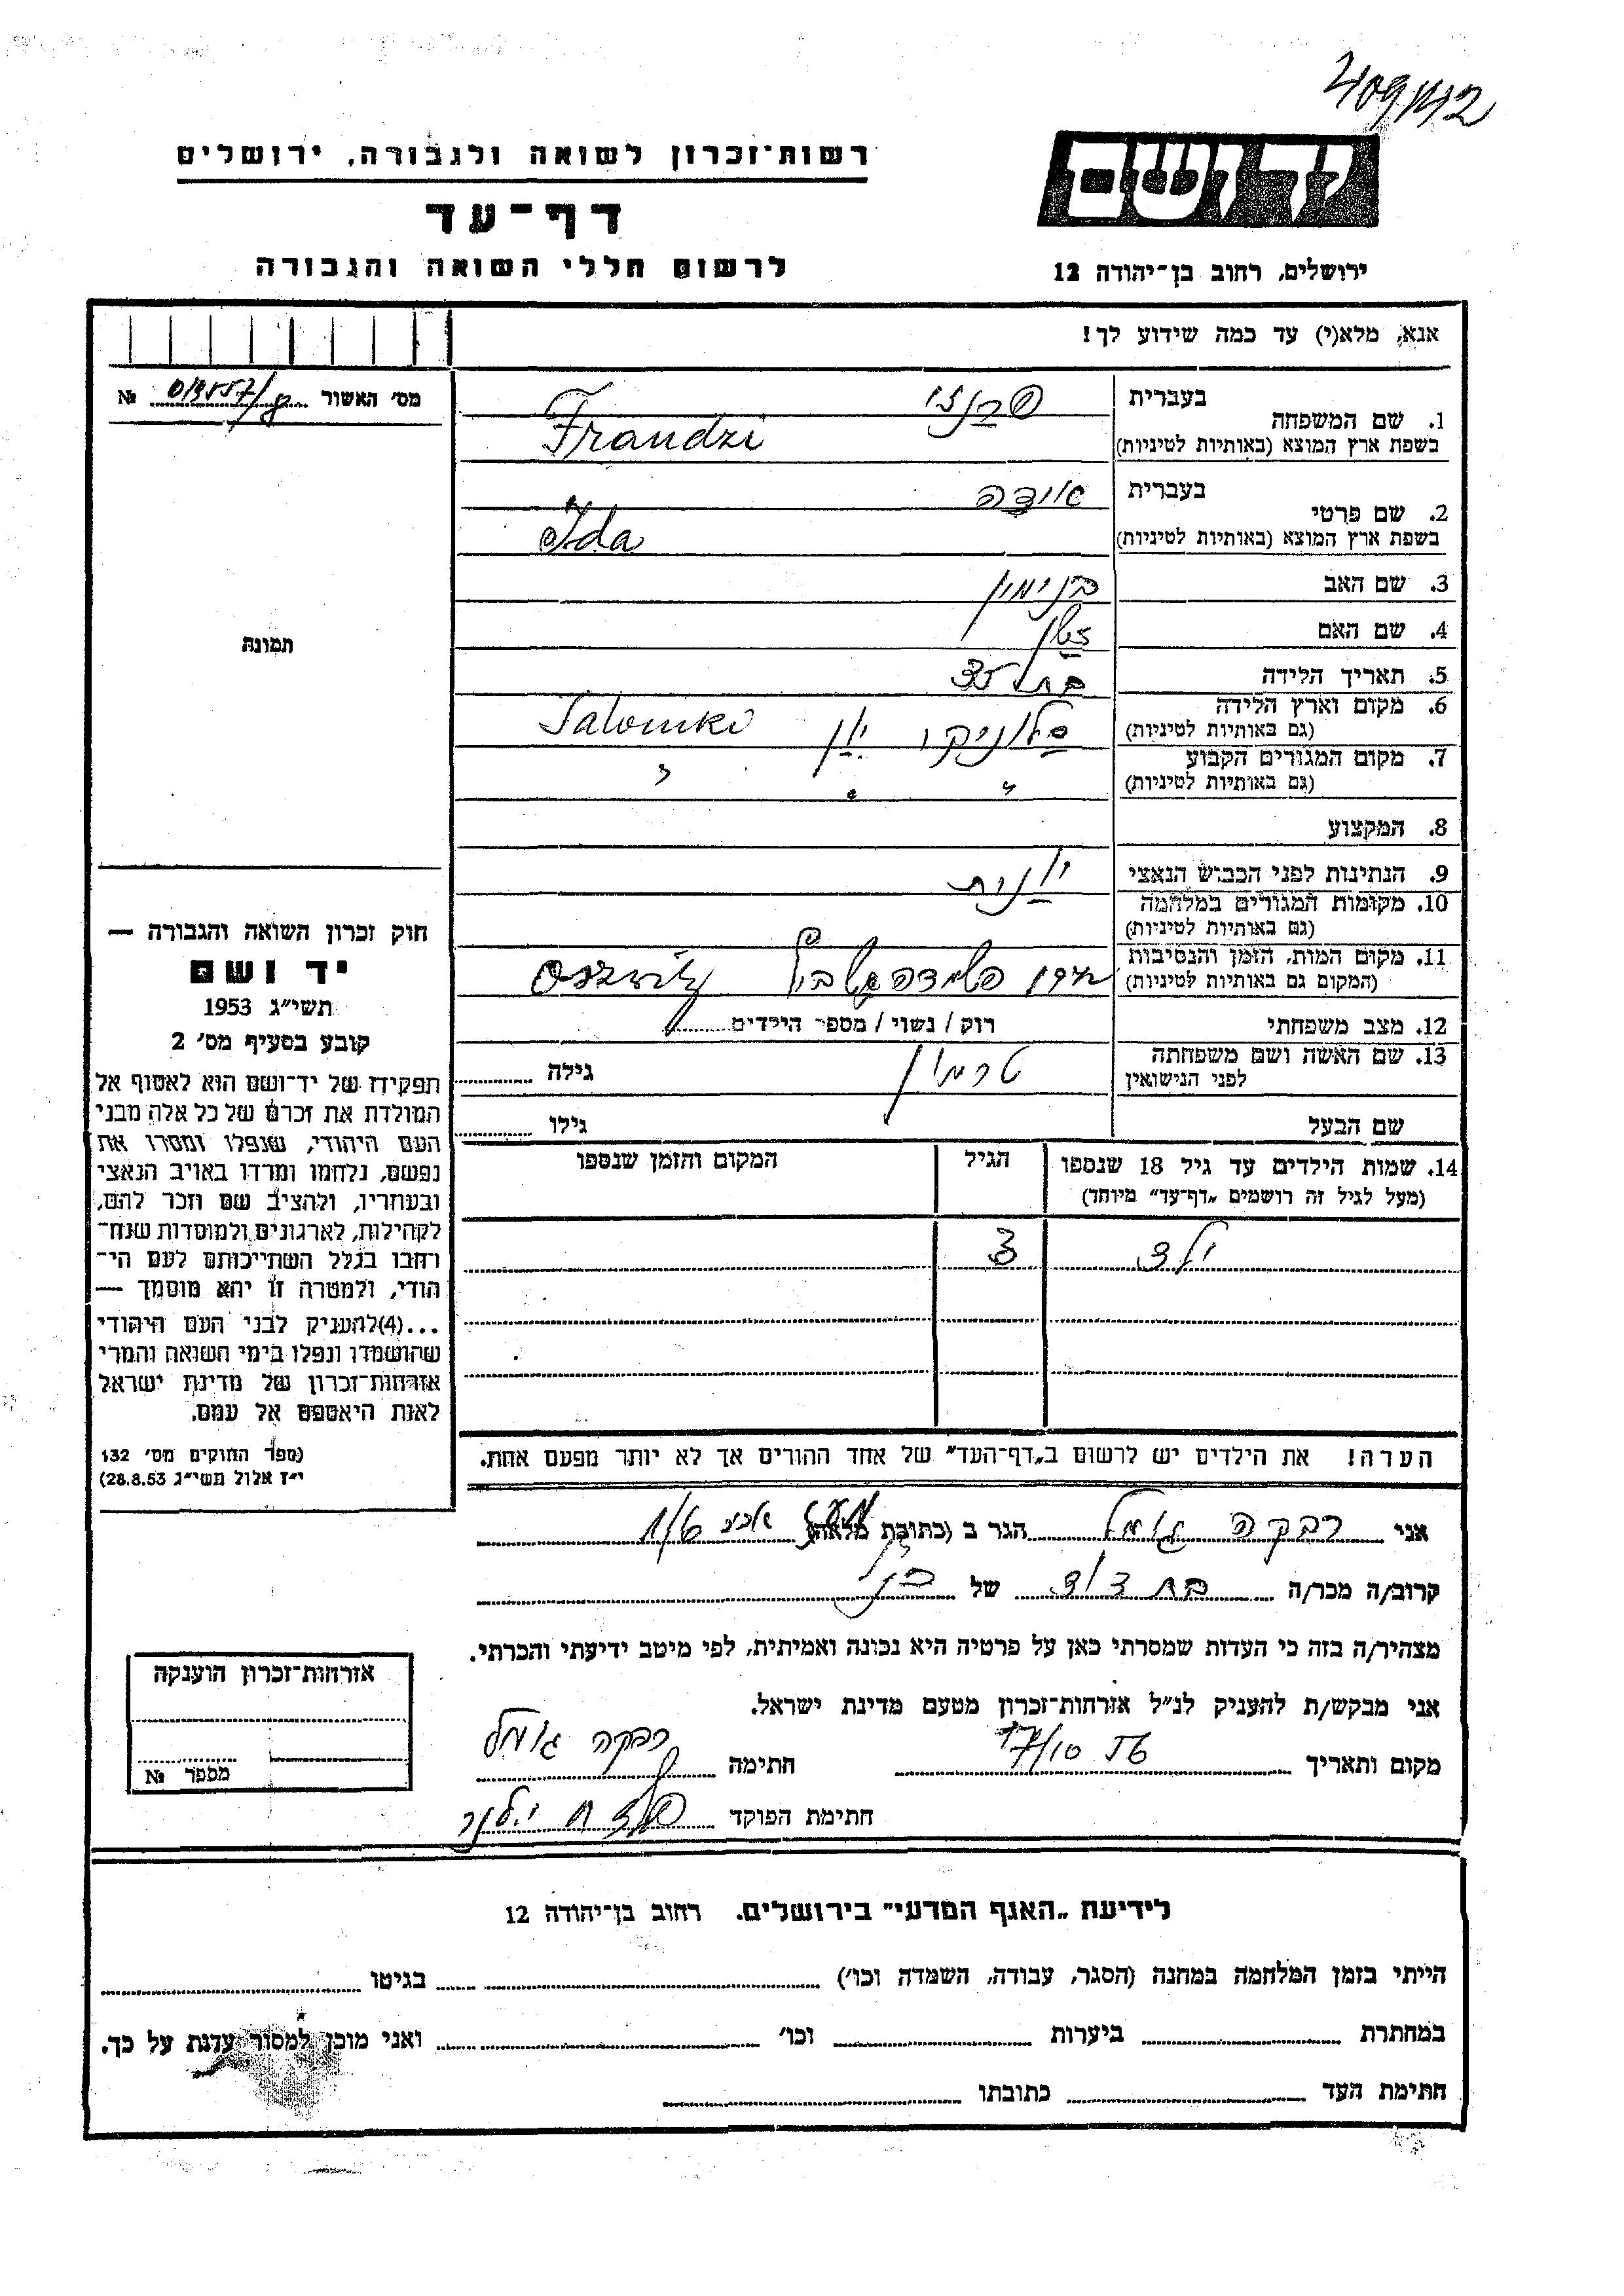 409/142
יד ושם
רשות־זכרון לשואה ולגבורה, ירושלים
דף־עד
לרשום חללי השואה והגבורה
ירושלים, רחוב בן־יהודה 12
אנא, מלא(י) עד כמה שידוע לך!
מס׳ האשור № 
בעברית
1. שם המשפחה
(בשפת ארץ המוצא (באותיות לטיניות
פרנזי
Frandzi
בעברית
2. שם פרטי
(בשפת ארץ המוצא (באותיות לטיניות
אידה
Ida
3. שם האב בנימין
4. שם האם
5. תאריך הלידה בת 35
6. מקום וארץ הלידה
(גם באותיות לטיניות)
סלוניקי יון Saloniki
7. מקום המגורים הקבוע
(גם באותיות לטיניות)
״ ״ ״
8. המקצוע
9. הנתינות לפני הכבוש הנאצי יונית
10. מקומות המגורים במלחמה
(גם באותיות לטיניות)
11. מקום המות, הזמן והנסיבות
(המקום גם באותיות לטיניות)
12. מצב משפחתי רוק / נשוי / מספר הילדים
13. שם האשה ושם משפחתה
לפני הנישואין
גילה
שם הבעל גילו
14. שמות הילדים עד גיל 18 שנספו
(מעל לגיל זה רושמים „דף־עד״ מיוחד)
הגיל
המקום והזמן שנספו
ילד 3
הערה! את הילדים יש לרשום ב„דף־העד״ של אחד ההורים אך לא יותר מפעם אחת.
תמונה
חוק זכרון השואה והגבורה —
יד ושם
תשי״ג 1953
קובע בסעיף מס׳ 2
תפקידו של יד־ושם הוא לאסוף אל
המולדת את זכרם של כל אלה מבני
העם היהודי, שנפלו ומסרו את
נפשם, נלחמו ומרדו באויב הנאצי
ובעוזריו, ולהציב שם וזכר להם,
לקהילות, לארגונים ולמוסדות שנח־
רבו בגלל השתייכותם לעם הי־
הודי, ולמטרה זו יהא מוסמך —
...(4)להעניק לבני העם היהודי
שהושמדו ונפלו בימי השואה והמרי
אזרחות־זכרון של מדינת ישראל
לאות היאספם אל עמם.
(ספר החוקים מס׳ 132
י״ז אלול תשי״ג 28.8.53)
אני רבקה גומל הגר ב (כתובת מלאה)
קרוב/ה מכר/ה בת דוד של
מצהיר/ה בזה כי העדות שמסרתי כאן על פרטיה היא נכונה ואמיתית, לפי מיטב ידיעתי והכרתי.
אני מבקש/ת להעניק לנ״ל אזרחות־זכרון מטעם מדינת ישראל.
מקום ותאריך 17/10 חתימה רבקה גומל
חתימת הפוקד
אזרחות־זכרון הוענקה
מספר №
לידיעת „האגף המדעי״ בירושלים. רחוב בן־יהודה 12
הייתי בזמן המלחמה במחנה (הסגר, עבודה, השמדה וכו׳) בגיטו
במחתרת ביערות וכו׳ ואני מוכן למסור עדות על כך.
חתימת העד כתובתו